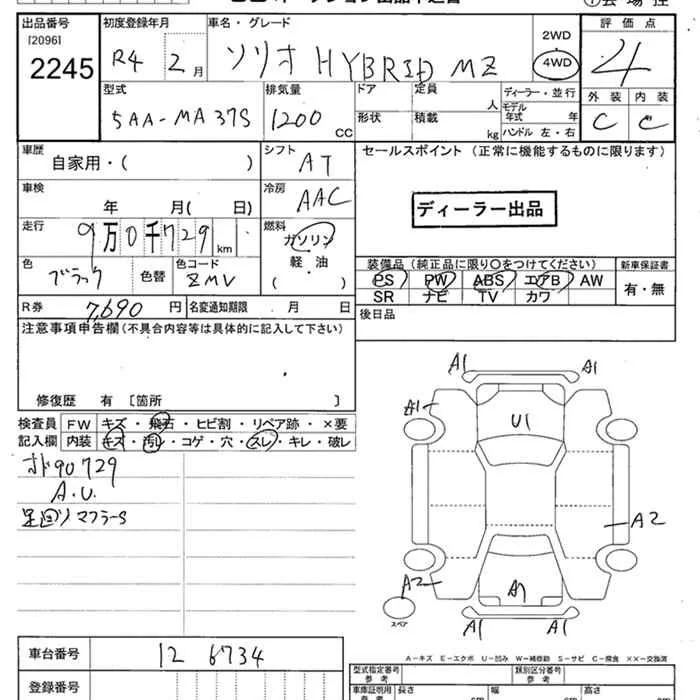 出品番号 初度登録年月 車名・グレード 評価点
[2096]
2245 R4 2月 ソリオ HYBRID MZ 2WD 4WD 4
型式 排気量 ドア 定員 人 ディーラー・並行 外装 内装
5AA-MA37S 1200 CC 形状 積載 kg モデル年式 年 C C
ハンドル 左・右
車歴 シフト セールスポイント (正常に機能するものに限ります)
自家用・( ) AT
車検 冷房
年 月( 日) AAC ディーラー出品
走行 燃料
9万0千729km ガソリン
軽・油
( )
色 色替 色コード 装備品(純正品に限り〇をつけてください) 新車保証書
ブラック ZMV PS PW ABS エアB AW 有・無
SR ナビ TV カワ
R券 7,690円 名変通知期限 月 日 後日品
注意事項申告欄(不具合内容等は具体的に記入して下さい)
修復歴 有 [箇所 ]
検査員 FW キズ・飛石・ヒビ割・リペア跡・×要
記入欄 内装 キズ・汚レ・コゲ・穴・スレ・キレ・破レ
A1 A1
A1
U1
A2
A2 A7
A1 A1
スペア
90729
A.U.
足回り マフラーS
A-キズ E-エクボ U-凹み W-補修跡 S-サビ C-腐食 ××-交換済
車台番号 12 6734
登録番号
型式指定番号 参考 類別区分番号 参考
車庫証明用 参考 長さ 幅 高さ